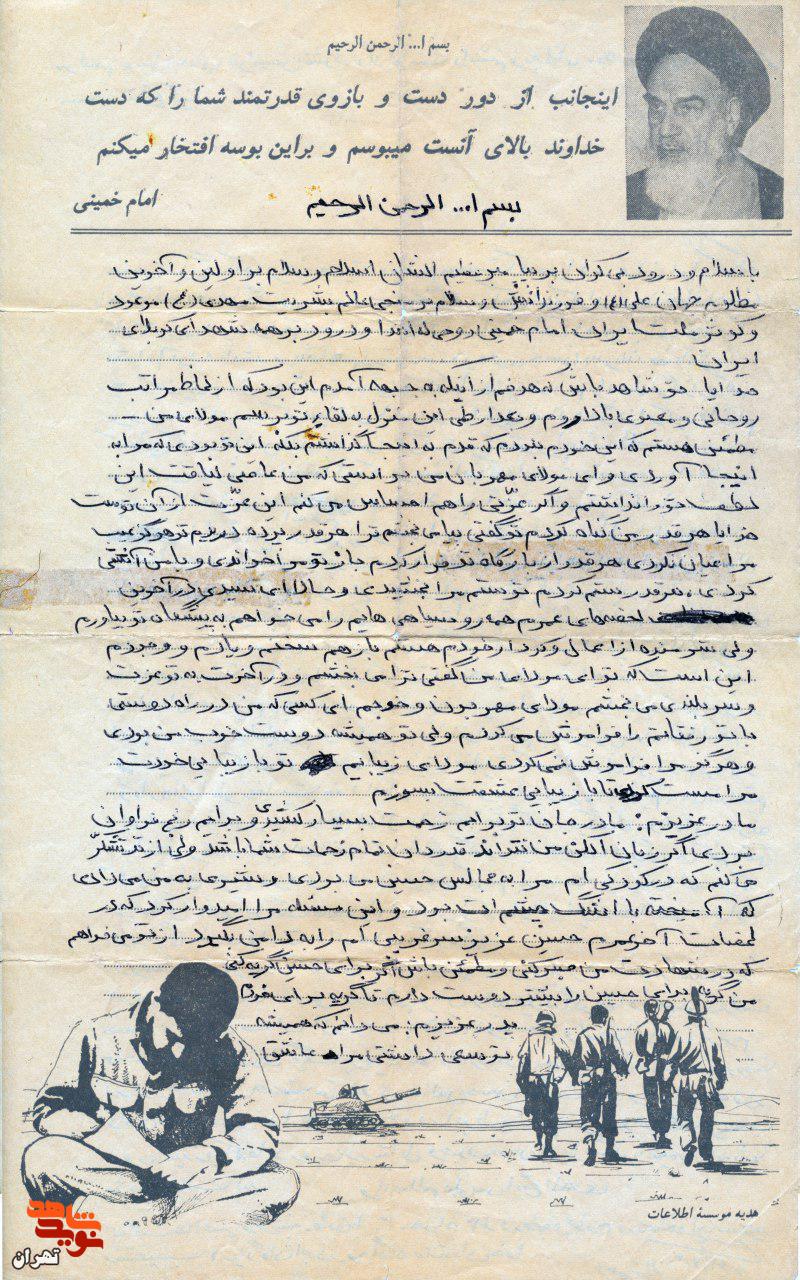 بسم ا... الرحمن الرحیم
اینجانب از دور دست و بازوی قدرتمند شما را که دست
خداوند بالای آنست میبوسم و براین بوسه افتخار میکنم
امام خمینی
بسم ا... الرحمن الرحیم
با سلام و درود بی کران بر پیامبر عظیم الشان اسلام و سلام بر اولین و آخرین
مظلوم جهان علی (ع) و فرزندانش و سلام بر منجی عالم بشریت مهدی (عج) موعود
و درود بر همه شهدای کربلای
ایران
خدایا تو شاهد باش که هدفم از اینکه به جبهه آمدم این بود که از لحاظ مراتب
روحانی و معنوی بالا روم و بعد از طی این منزل به لقاء تو برسم مولای من
مطمئن هستم که این خودم نبودم که قدم به اینجا گذاشتم بلکه این تو بودی که مرا به
اینجا آوردی و ای مولای مهربان من براستی که من عاصی لیاقت این
لطف تو را نداشتم و اگر عزتی را هم احساس می کنم این عزت از آن توست
خدایا هر قدر من گناه کردم تو گفتی بیا می بخشم ترا هر قدر پرده دریدم تو هرگز عیب
مرا عیان نکردی هر قدر از بارگاه تو فرار کردم باز تو مرا خواندی و با من آشتی
کردی، هر قدر ستم کردم تو ستم مرا بخشیدی و حالا ای سیدی در آخرین
لحظه‌های عمرم همه رو سیاهی هایم را می خواهم به پیشگاه تو بیاورم
ولی شرمنده از اعمال و کردار خودم هستم باز هم سخنم و یادم و وجودم
این است که تو ای مولای من گفتی ترا می بخشم و در آخرت به تو عزت
و سربلندی می بخشم مولای مهربون و خوبم ای کسی که من در راه دوستی
با تو رفتانم را فراموش می کردم ولی تو همیشه دوست خوب من بودی
و هرگز مرا فراموش نمی کردی مولای زیبایم تو با زیبایی خودت
مرا مست کن تا با زیبایی عشقت بسوزم
مادر عزیزم: مادر جان تو برایم زحمت بسیار کشیدی و برایم رنج فراوان
بردی اگر زبان الکن من نتواند قدردان تمام زحمات شما باشد ولی از تو تشکر
می کنم که در کودکی ام مرا به مجالس حسین می بردی و شیری به من می دادی
که آمیخته با اشک چشم ات بود و این مسئله مرا امیدوار کرد که در
لحظات آخر عمرم حسین عزیز سر غریبی ام را به دامن بگیرد از تو می خواهم
که در شهادت من صبر کنی و مطمئن باش اگر برای حسین گریه کنی
من گریه برای حسین را بیشتر دوست دارم تا گریه برای خودم
پدر عزیزم: می دانم که همیشه
تو سعی داشتی مرا عاشق
هدیه موسسهٔ اطلاعات
نوید شاهد
تهران